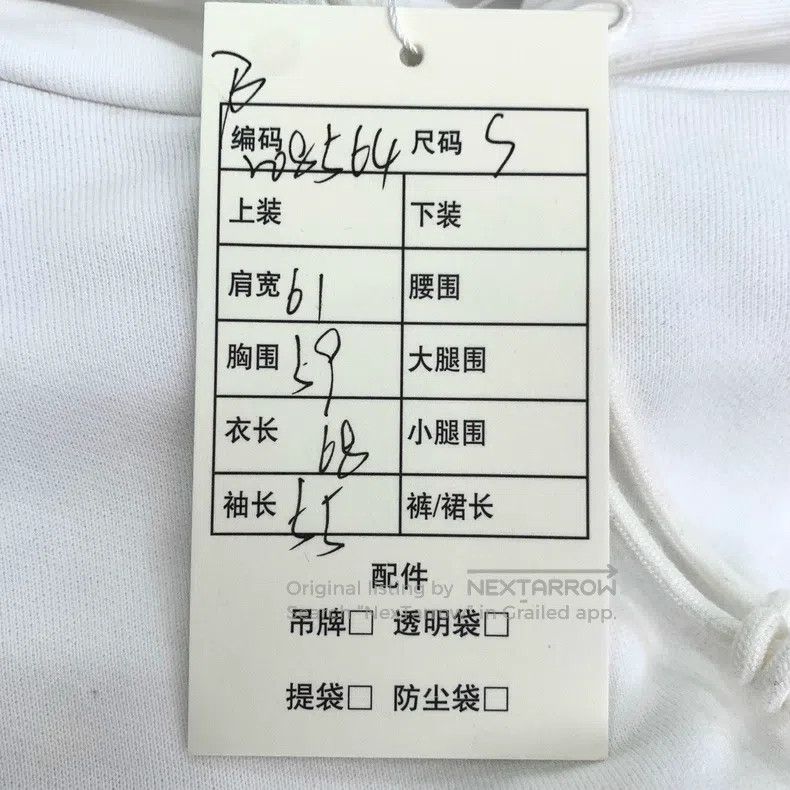 B
编码 208564 尺码 S
上装 下装
肩宽 61 腰围
胸围 59 大腿围
衣长 68 小腿围
袖长 55 裤/裙长
配件
Original listing by NEXTARROW
Search "NexTarrow" in Grailed app.
吊牌□ 透明袋□
提袋□ 防尘袋□